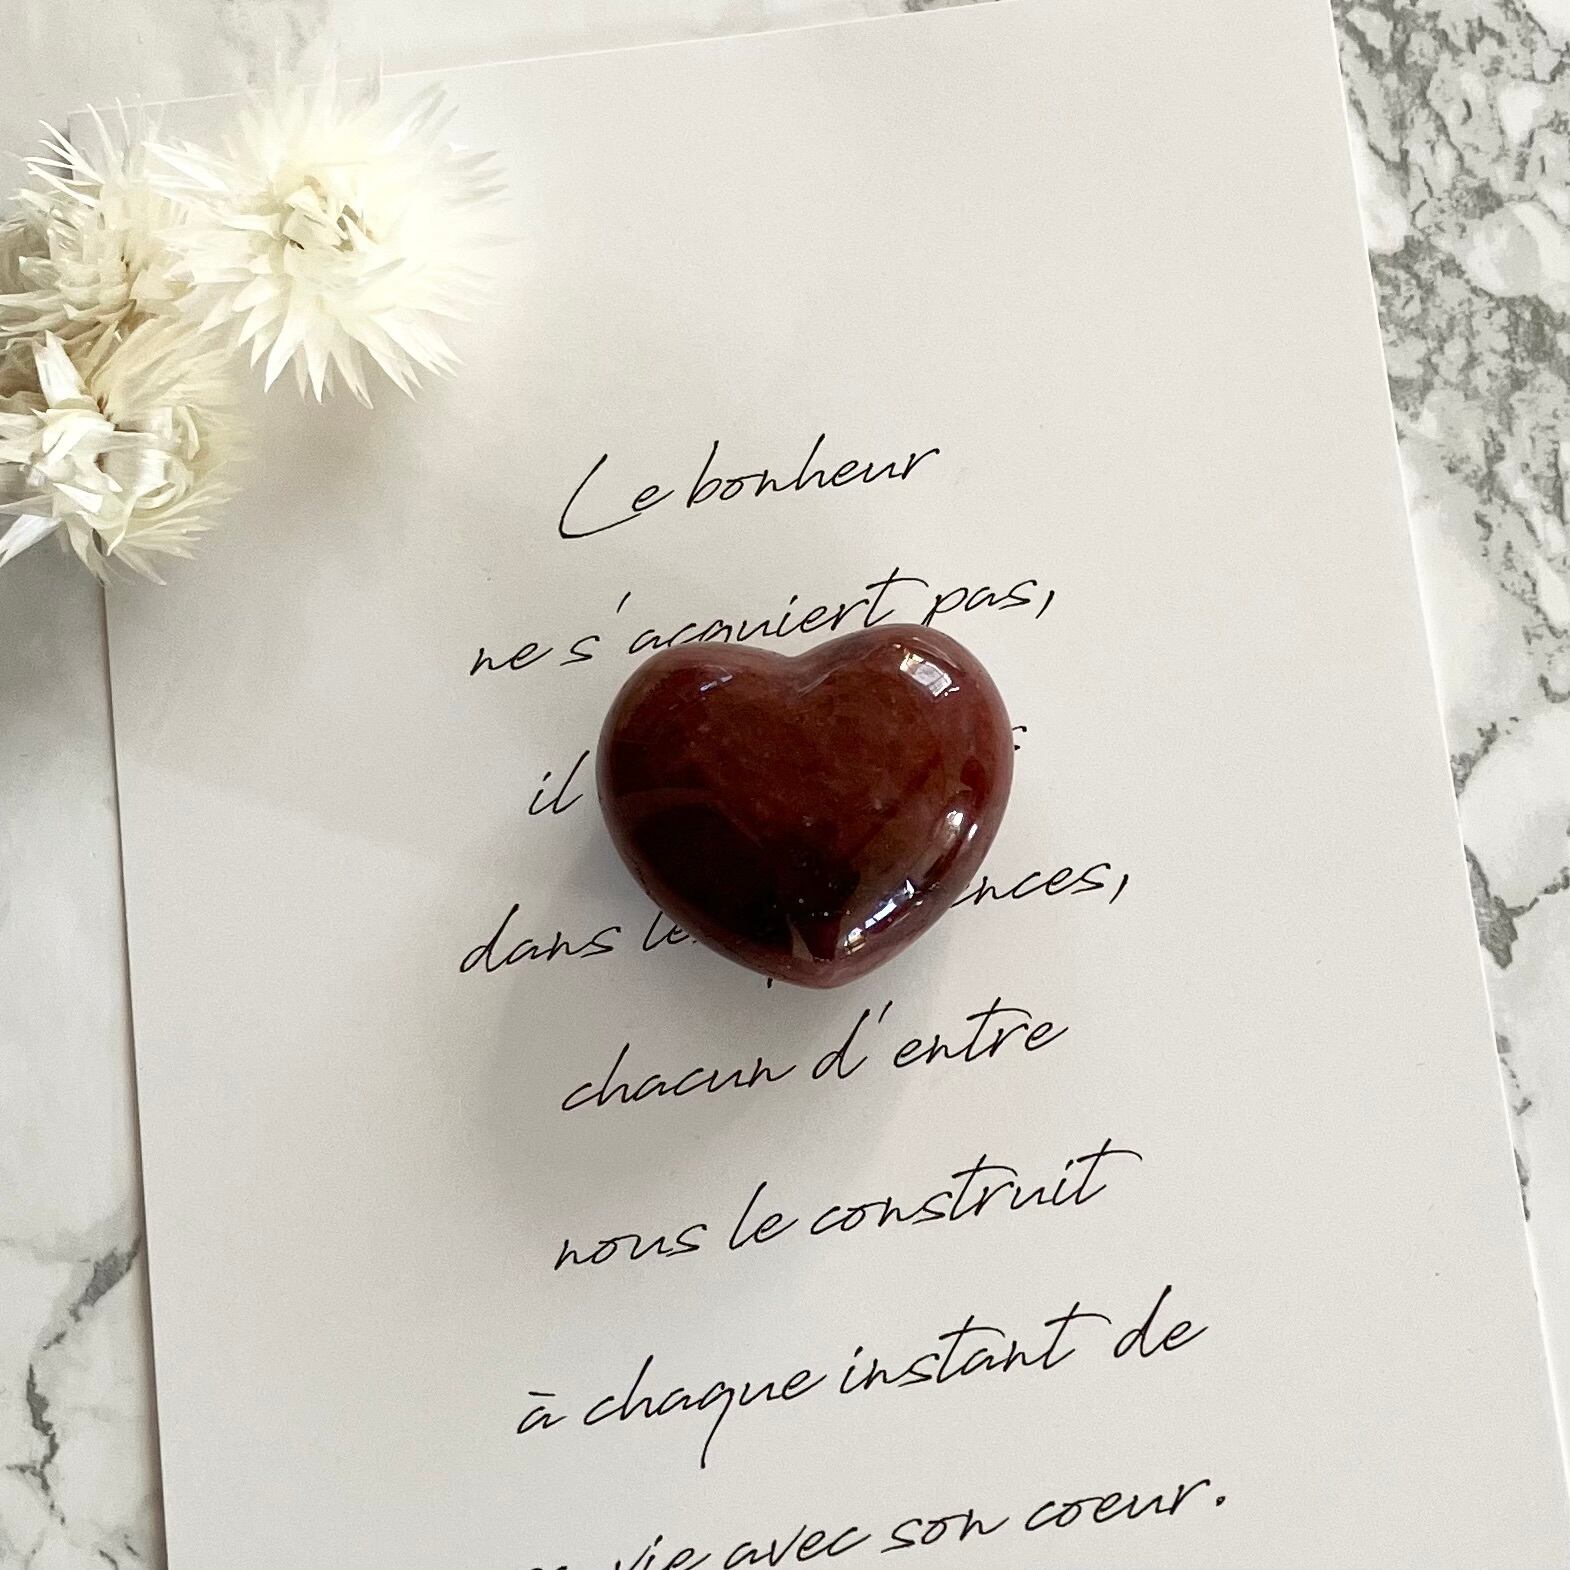 Le bonheur
ne s'acquiert pas,
il
dans les
chacun d'entre
nous le construit
à chaque instant de
vie avec son coeur.